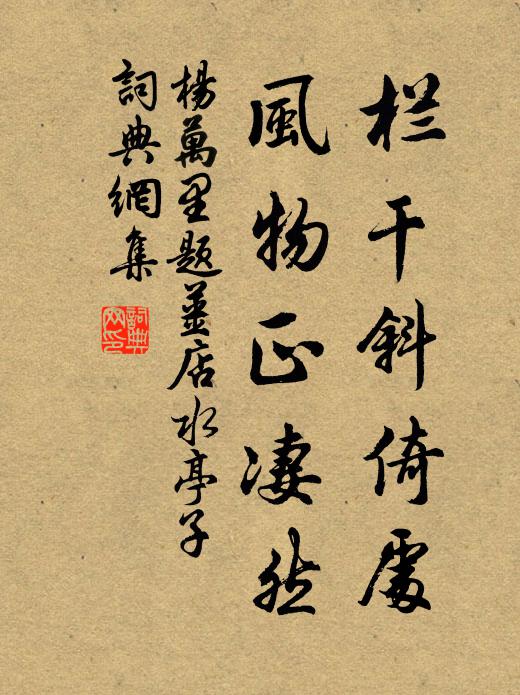 栏干斜倚處
風物正淒然
楊萬里題薑店水亭子
詞典網集
詞典网印